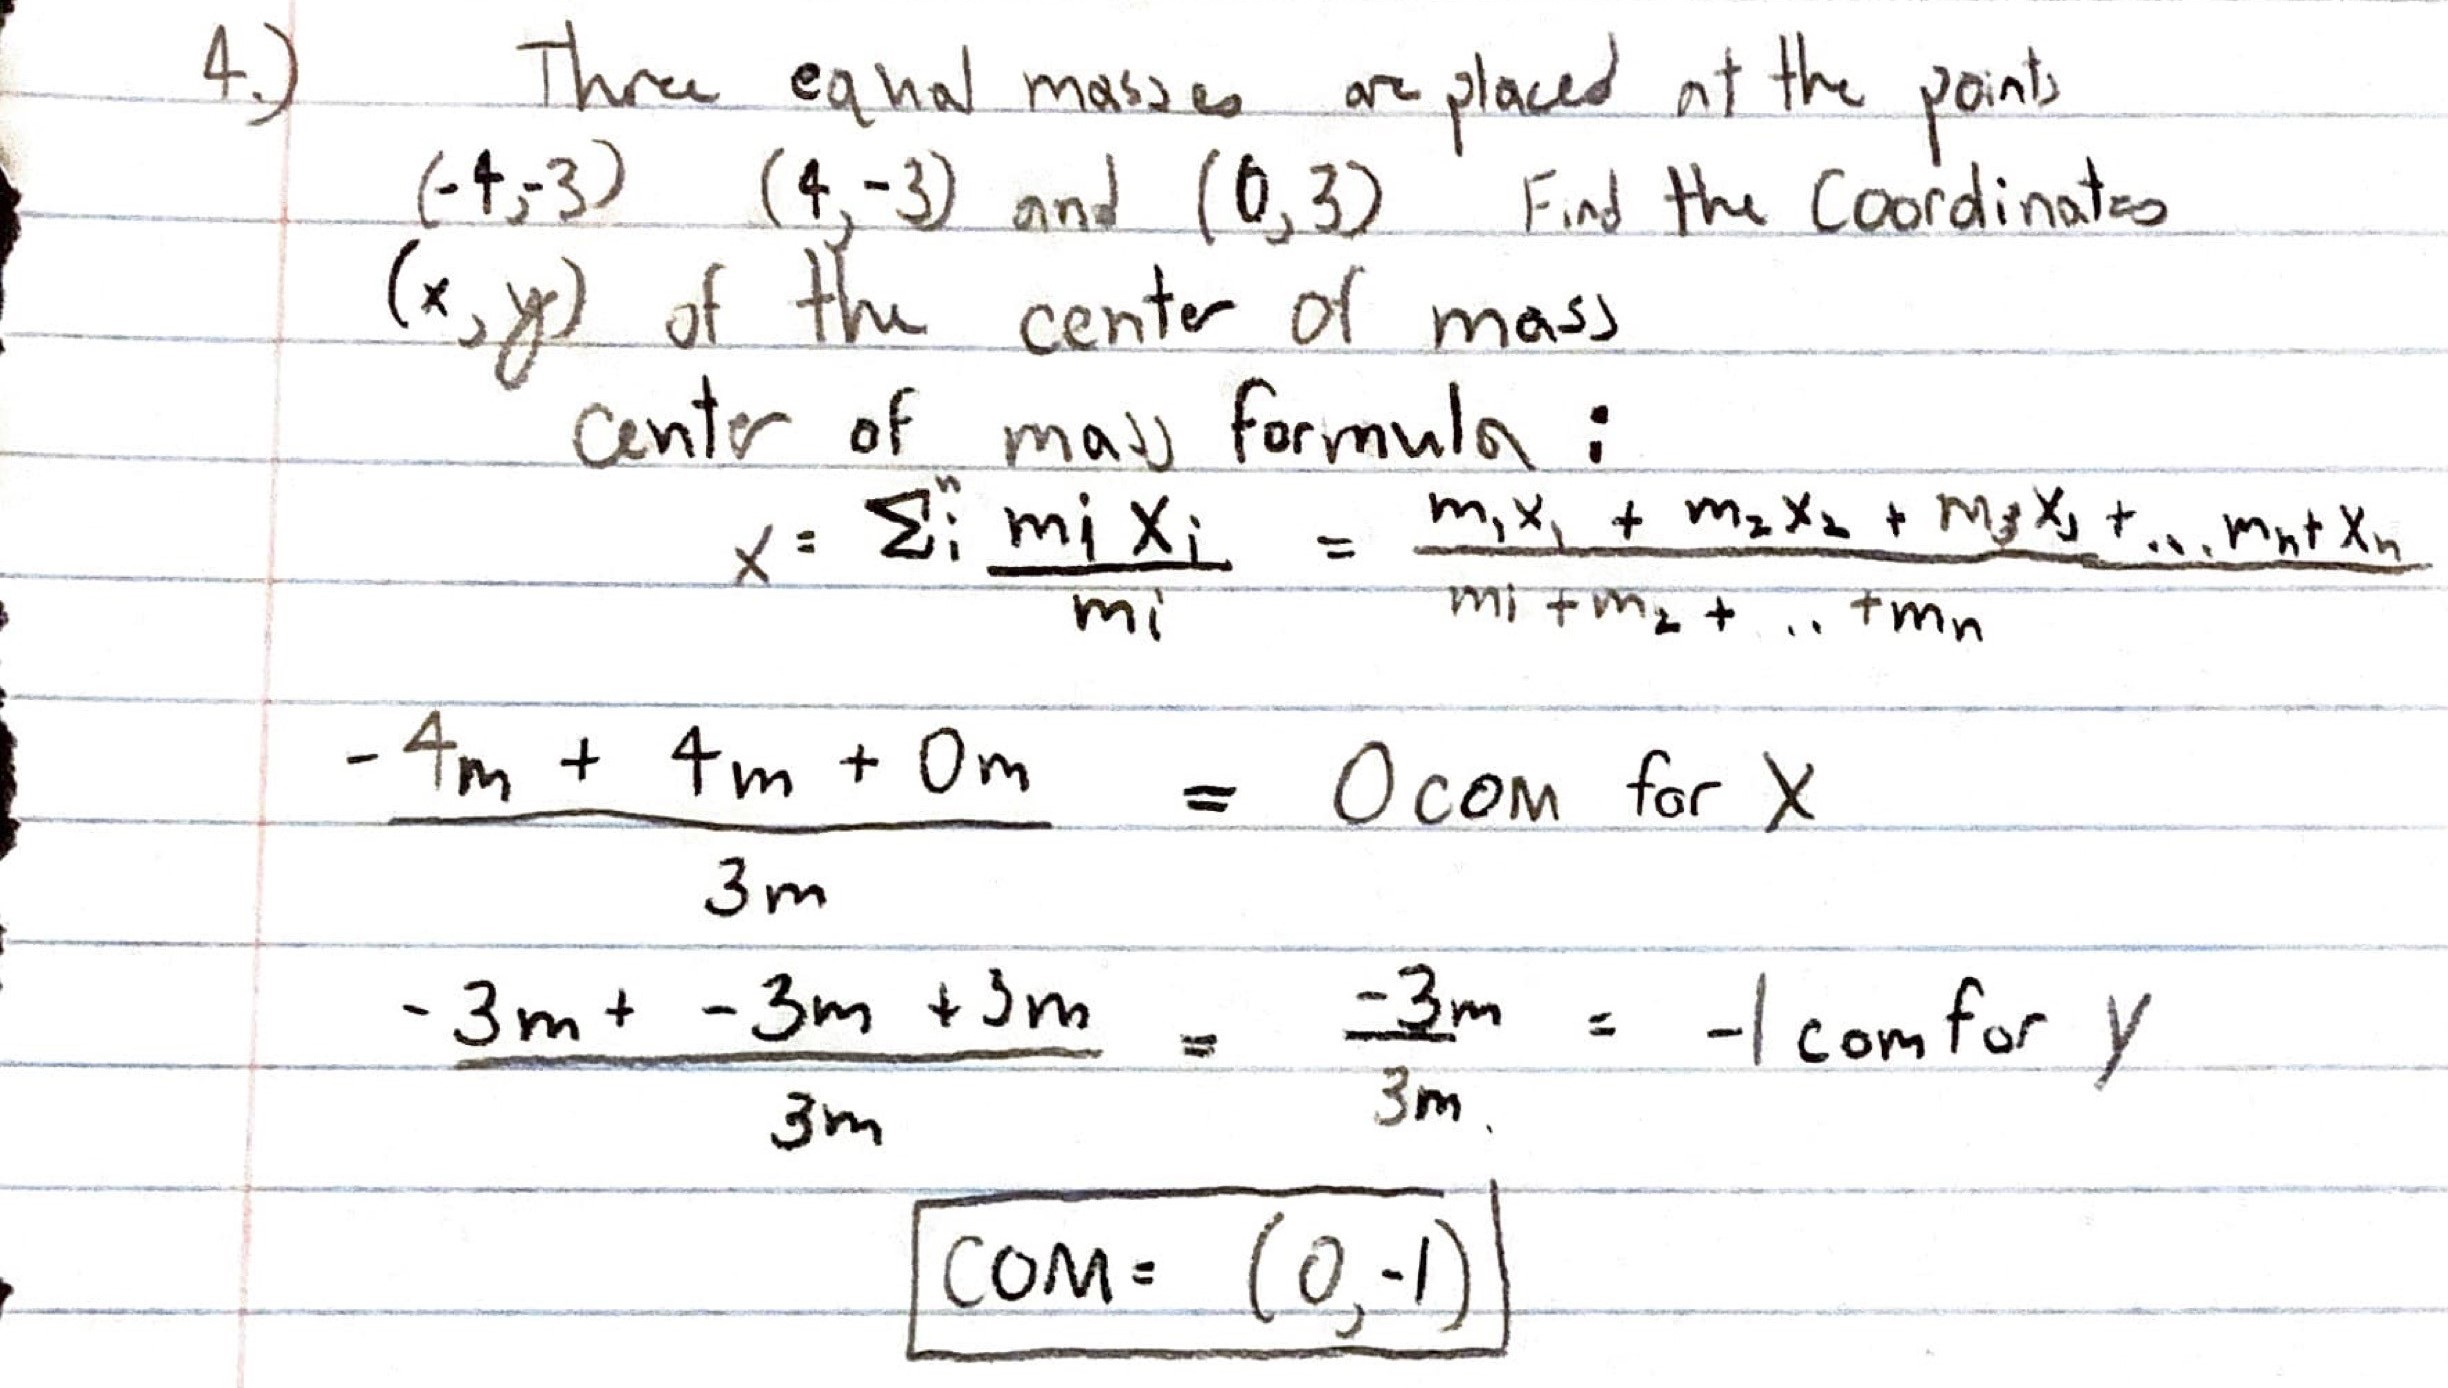 4.) Three equal masses are placed at the points
(-4,-3) (4,-3) and (0,3) Find the Coordinates
(x,y) of the center of mass
center of mass formula:
x = Σᵢⁿ mi xi / mi = m₁x₁ + m₂x₂ + m₃x₃ + ... mn+xn / m1 + m₂ + .. + mn
-4m + 4m + 0m / 3m = 0 COM for X
-3m + -3m + 3m / 3m = -3m / 3m. = -1 com for y
COM = (0,-1)